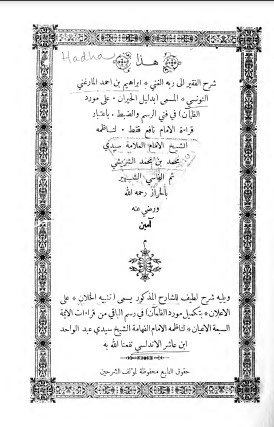 Hadha
هذا
شرح الفقير الى ربه الغني * ابراهيم بن احمد المارغني
التونسي * المسمى (بدليل الحيران * على مورد
الظمآن) في فني الرسم والضبط * باعتبار
قراءة الامام نافع فقط * لناظمه
الشيخ الامام العلامة سيدي
محمد بن محمد الشريشي
ثم الفاسي الشهير
بالخراز رحمه الله
ورضي عنه
آمين
ويليه شرح لطيف للشارح المذكور يسمى (تنبيه الخلان * على
الاعلان * بتكميل مورد الظمآن) في رسم الباقي من قراءات الائمة
السبعة الاعيان * لناظمه الامام الفهامة الشيخ سيدي عبد الواحد
ابن عاشر الاندلسي نفعنا الله به
حقوق الطبع محفوظة لمؤلف الشرحين